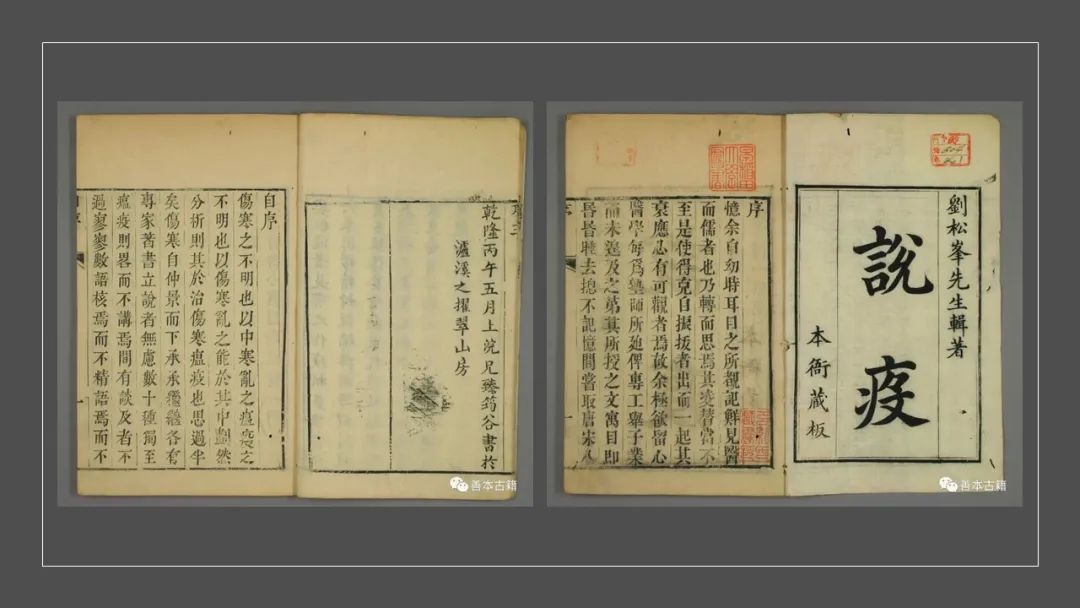 劉松峯先生輯著
說疫
本衙藏板
序
憶余自幼時耳目之所觀記鮮見醫
而儒者也乃轉而思焉其變替當不
至是使得克自振拔者出而一起其
衰應必有可觀者焉故余極欲留心
醫學每爲塾師所廹俾專工舉子業
而未遑及之第其所授之文寓目即
昏昏睡去揔不記憶間嘗取唐宋人
善本古籍
乾隆丙午五月上浣兄臻筠谷書於
瀘溪之擢翠山房
自序
傷寒之不明也以中寒亂之瘟疫之
不明也以傷寒亂之能於其中劃然
分析則其於治傷寒瘟疫也思過半
矣傷寒自仲景而下承承繼繼各有
專家著書立說者無慮數十種獨至
瘟疫則畧而不講焉間有談及者不
過寥寥數語核焉而不精語焉而不
善本古籍